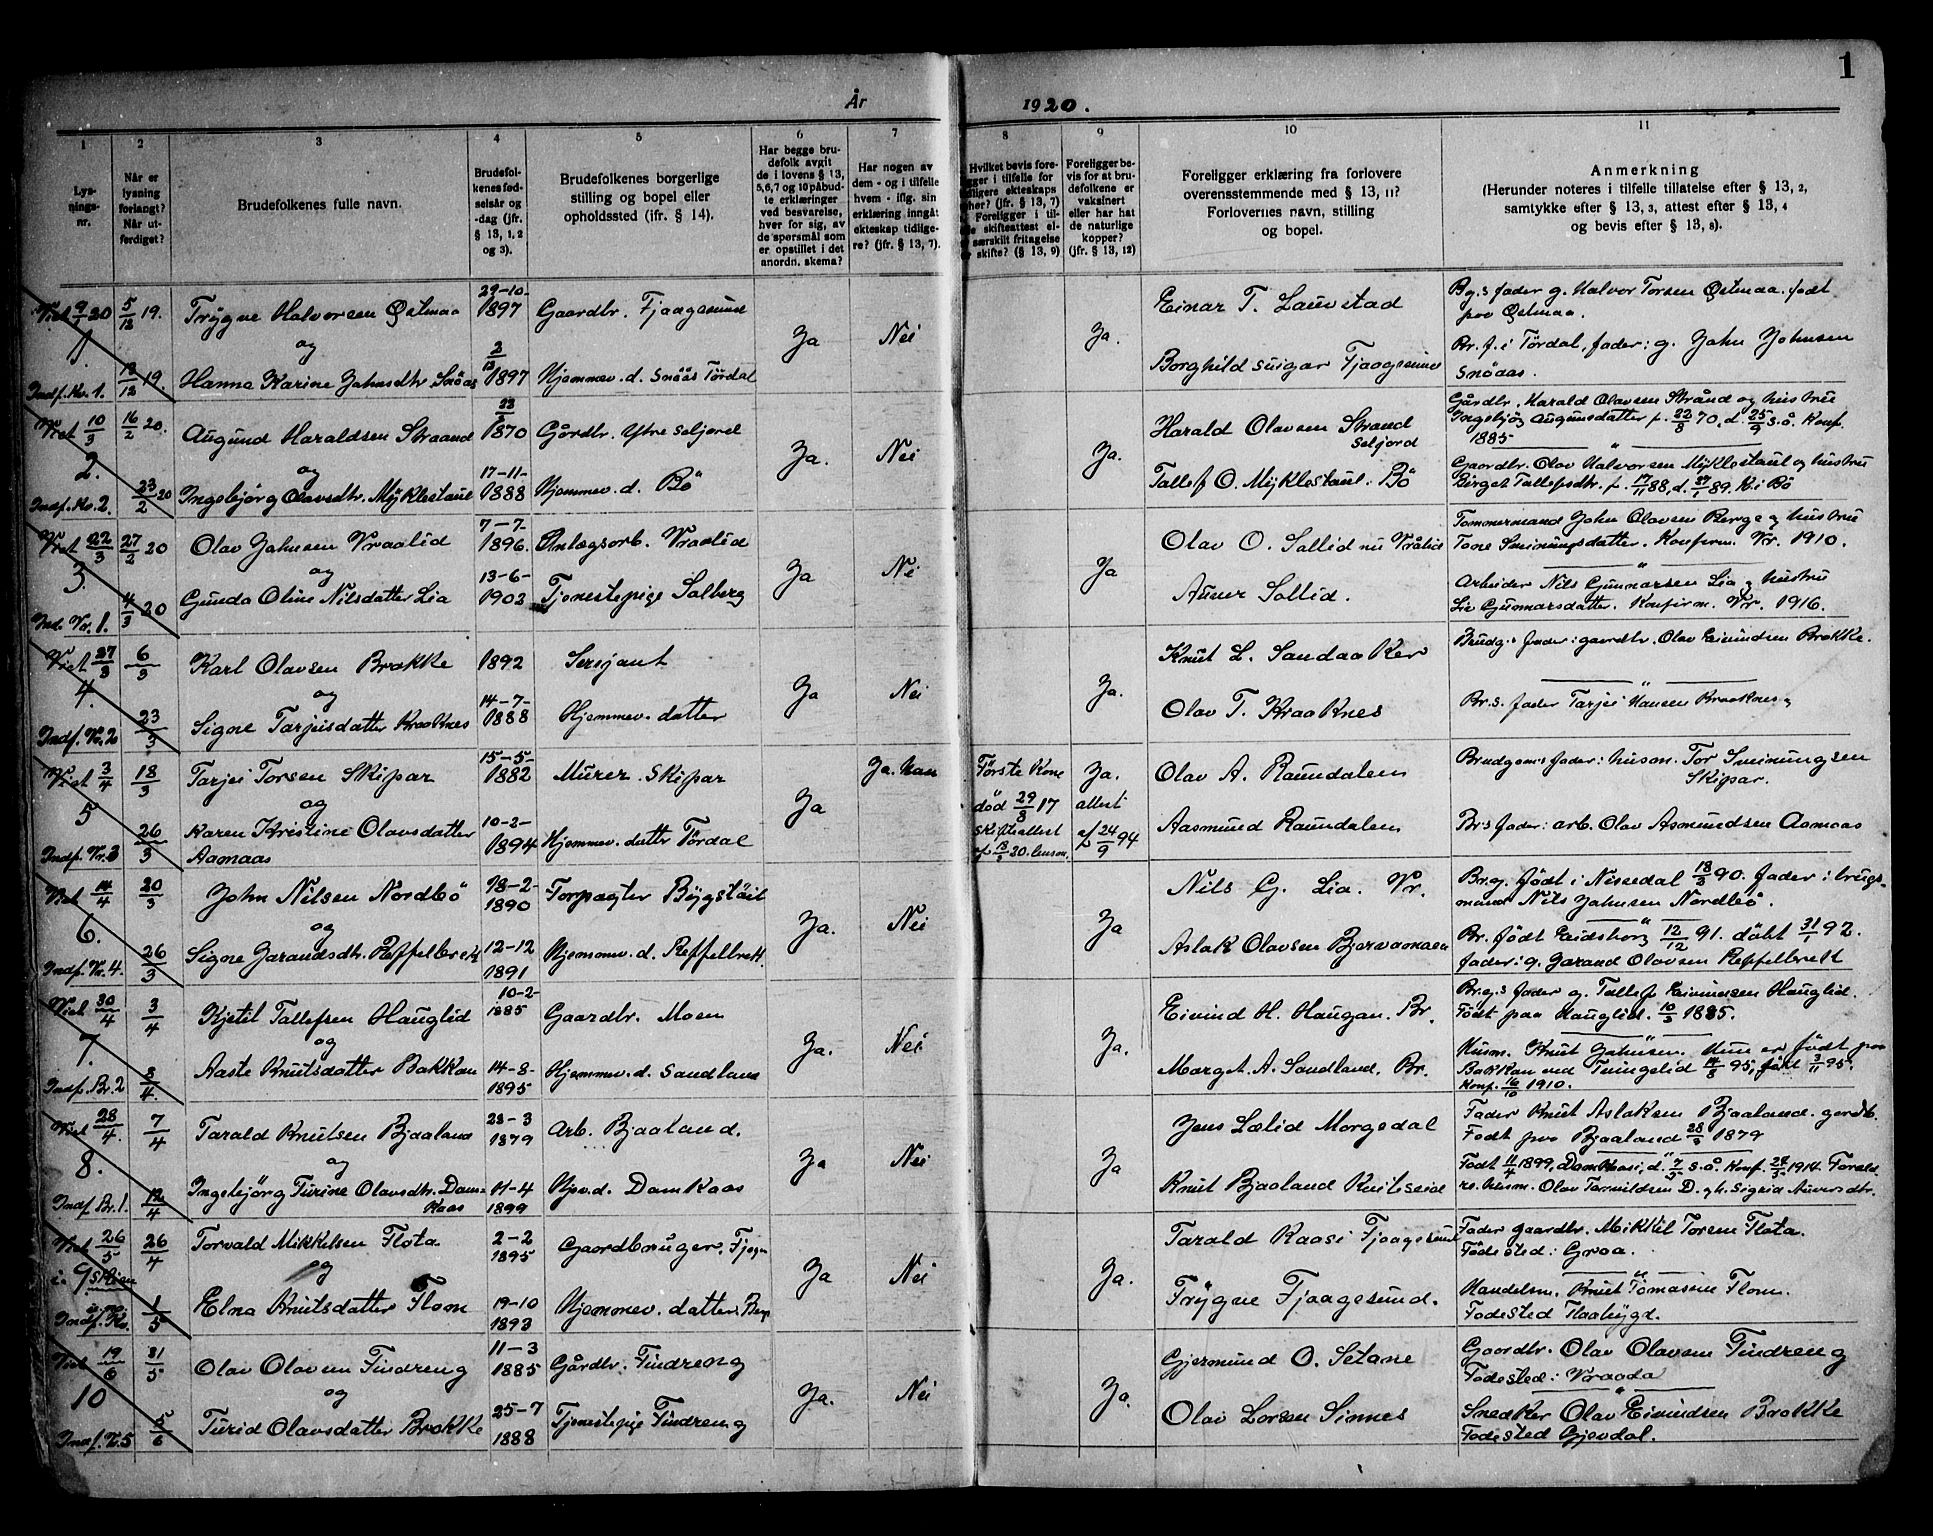 1
År 1920.
1 2 3 4 5 6 7 8 9 10 11
Lys-
nings-
nr.
Når er
lysning
forlangt?
Når ut-
ferdiget?
Brudefolkenes fulle navn.
Brudefol-
kenes fød-
selsår og
-dag (jfr.
§ 13, 1, 2
og 3).
Brudefolkenes borgerlige
stilling og bopel eller
opholdssted (ifr. § 14).
Har begge bru-
defolk avgit
de i lovens § 13,
5,6,7 og 10 påbud-
te erklæringer
ved besvarelse,
hver for sig, av
de spørsmål som
er opstillet i det
anordn. skema?
Har nogen av
dem - og i tilfelle
hvem - iflg. sin
erklæring inngått
ekteskap tidlige-
re? (jfr. § 13, 7).
Hvilket bevis fore-
gger i tilfelle for
dligere ekteskaps
hør? (jfr. § 13, 7)
Foreligger i til-
le skifteattest el-
særskilt fritagelse
skifte? (§ 13, 9)
Foreligger be-
vis for at bru-
defolkene er
vaksinert
eller har hat
de naturlige
kopper?
(jfr. § 13, 12)
Foreligger erklæring fra forlovere
overensstemmende med § 13, 11?
Forlovernes navn, stilling
og bopel.
Anmerkning
(Herunder noteres i tilfelle tillatelse efter § 13, 2,
samtykke efter § 13, 3, attest efter § 13, 4
og bevis efter § 13, 8).
Viet 9/1 20 5/12 19. Trygve Halvorsen Østmaa 29-10-1897 Gaardbr. Fjaagesund Einar T. Lauvstad Bg.s fader g. Halvor Torsen Østmaa. født
paa Østmaa.
1. og Ja Nei Ja.
Indf. Kv. 1. 13/12 19. Hanna Karine Jahnsdtr Snöaas 1897 Hjemmev. d. Snöås Tørdal Borghild Fjaagesund Br. f. i Tørdal, fader: g. John Johnsen
Snöaas.
Viet 10/3 16/2 20. Augund Haraldsen Straand 1870 Gårdbr. Ytre Seljord Harald Olavsen Strand
Seljord
Gårdbr. Harald Olavsen Strånd og hustru
Ingebjøg Augunsdatter f. 22/8 70, d. 25/9 s.å. Konf.
1885
2. og Ja. Nei Ja.
Indf. Kv. 2. 23/2 20 Ingebjørg Olavsdtr. Myklestaul 17-11-1888 Hjemmev. d. Bö Tallef O. Myklestaul. Bö Gaardbr. Olav Halvorsen Myklestaul og hustru
Birget Tallefsdtr. f. 17/11 88, d. 27/1 89. K. i Bö
Viet 22/3 27/2 20 Olav Jahnsen Vraalid 7-7-1896. Anlægsarb. Vraalid Olav O. Sollid nu Vrålid Tømmermand John Olavsen Berge og hustru
Tone Sveinungsdatter. Konfirm. Vr. 1910.
3. og Ja Nei Ja
Ind. Vr. 1. 4/3 20 Gunda Oline Nilsdatter Lia 13-6-1902 Tjenestepige Solberg Auver Sollid. Arbeider Nils Gunnarsen Lia og hustru
Liv Gunnarsdatter. Konfirm. Vr. 1916.
Viet 27/3 6/3 Karl Olavsen Brække 1892 Sersjant Knut L. Sandaaker Brudg.s fader: gaardbr. Olav Eivindsen Brække.
4. og Ja Nei Ja.
Indf. Vr. 2 23/3 Signe Tarjeisdatter Kraaknes 14-7-1888 Hjemmev. datter Olav T. Kraaknes Br.s. fader Tarjei Hansen Kraaknes
Viet 3/4 18/3 Tarjei Torsen Skipar 15-5-1882 Murer. Skipar Ja. han Første kone
død 29/8 17
skifteattest
af 13/3 20.
Ja.
attest
af 24/9 94
Olav A. Raundalen Brudgoms fader: husm. Tor Sveinungsen
Skipar.
5 og Ja
Indf. Vr. 3 26/3 Karen Kristine Olavsdatter
Aamaas
10-2-1894 Hjemmev. datter Tørdal Aasmund Raundalen Br.s fader: arb. Olav Asmundsen Aamaas
Viet 14/4 20/3 John Nilsen Nordbö 18-2-1890 Forpagter Bygstöil Nils G. Lia. Vr. Br.g. født i Nissedal 18/3 90. fader: brugs-
mand Nils Jahnsen Nordbö.
6. og Ja. Nei Ja
Indf. Vr. 4. 26/3 Signe Jarandsdtr. Reffelbrekk 12-12 1891 Hjemmev. d. Reffelbrekk. Aslak Olavsen Bjervamoen Br. født Eidsborg 12/12 91. døbt 31/1 92.
fader: g. Jarand Olavsen Reffelbrekk
Viet 30/4 3/4 Kjetil Tallefsen Hauglid 10-2-1885 Gaardbr. Moen Eivind H. Haugan. Br. Br.g.s fader g. Tallef Eivindsen Hauglid.
Født paa Hauglid. 10/3 1885.
7. og Ja. Nei Ja.
Indf. Br. 2 8/4 Aaste Knutsdatter Bakkan 14-8-1895 Hjemmev. d. Sandland Marget. A. Sandland. Br. Husm. Knut Jahnsen. Hun er født paa
Bakkan ved Tveingelid 14/8 95, døbt 3/11 95.
Konf. 16/10 1910.
Viet 28/4. 7/4 Tarald Knutsen Bjaaland 28-3 1879 Arb. Bjaaland. Jens Lælid Morgedal Fader Knut Aslaksen Bjaaland. gardb.
Født paa Bjaaland 28/3 1879
8. og Ja Nei Ja
Indf. Br. 1. 12/4 Ingebjörg Turine Olavsdtr. Dam-
kaas
11-4 1899 Hjv. d. Damkaas Knut Bjaaland Kviteseid Født 11/4 1899, Damkaasi, d. 7/5 s.å. Konf. 24/5 1914. Forald-
re husm. Olav Tarvildsen D. gh. Sigrid Auversdtr.
Viet 26/5 26/4 Torvald Mikkelsen Flota 2-2 1895 Gaardbruger, Tarald Kaasi Fjaagesund Fader gaardbr. Mikkel Torsen Flota.
Fødested: Groa.
i. Skien 9 og Ja Nei Ja.
Indf. Kv. 1/5 Elna Knutsdatter Flom 19-10 1893 Hjemmev. datter. Trygve Fjaagesund. Handelsm. Knut Tomassen Flom.
Fødested Flaabygd.
Viet 19/6 31/5 Olav Olavsen Findreng 11-3 1885 Gårdbr. Findreng Gjermund O. Setane Gaardbr. Olav Olavsen Findreng
Fødested: Vraada
10 og Ja. Nei Ja.
Indf. 5 5/6 Turid Olavsdatter Brække 25-7 1888 Tjenestepige Findreng Olav Lorsen Sinnes Snedker Olav Eivindsen Brække
Fødested Gjevdal.